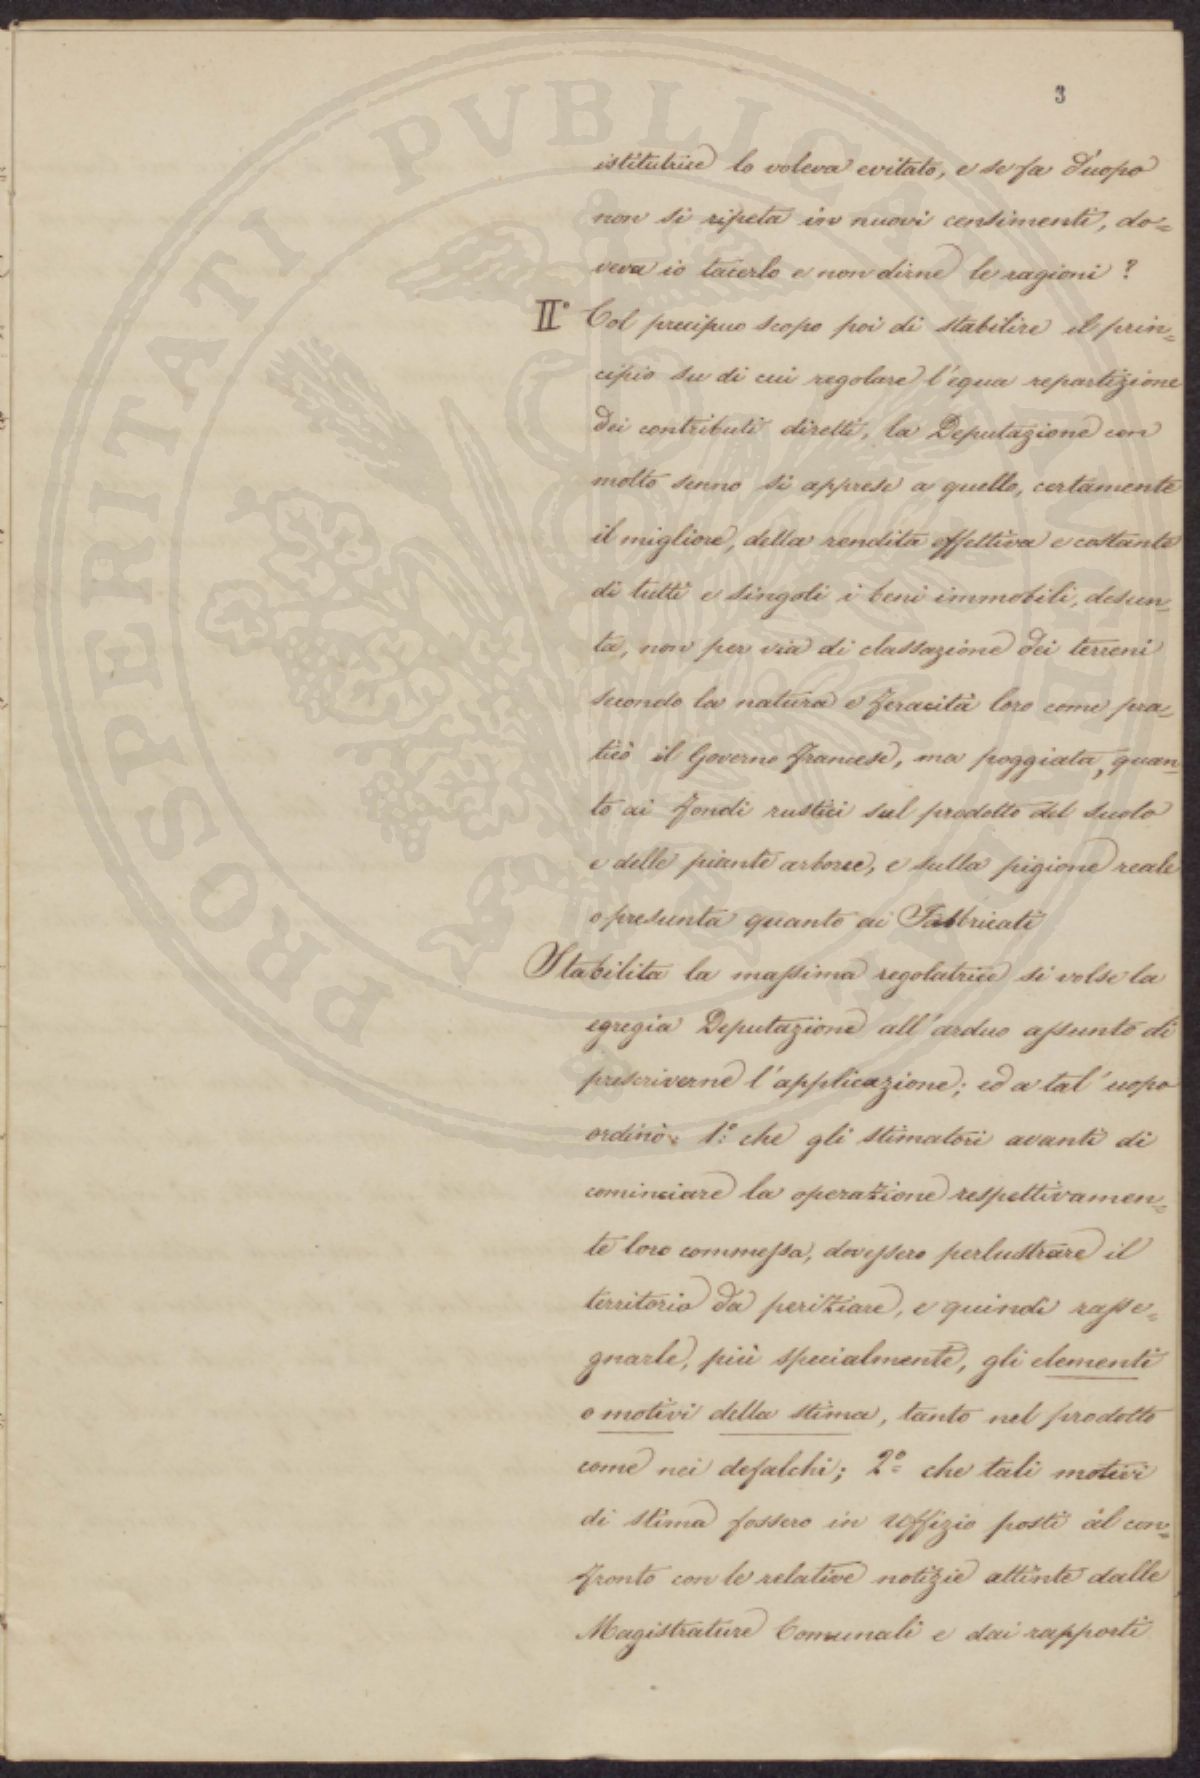 3
istitutrice lo voleva evitato, e se fa d'uopo
non si ripeta in nuovi censimenti, do=
veva io tacerlo e non dirne le ragioni?
II° Col precipuo scopo poi di stabilire il prin=
cipio su di cui regolare l'equa repartizione
dei contributi diretti, la Deputazione con
molto senno si apprese a quello, certamente
il migliore, della rendita effettiva e costante
di tutti e singoli i beni immobili, desun=
ta, non per via di classazione dei terreni
secondo la natura e feracità loro come pra=
ticò il Governo francese, ma poggiata, quan=
to ai fondi rustici sul prodotto del suolo
e delle piante arboree, e sulla pigione reale
o presunta quanto ai Fabbricati
Stabilita la massima regolatrice si volse la
egregia Deputazione all'arduo assunto di
prescriverne l'applicazione; ed a tal'uopo
ordinò: 1.° che gli stimatori avanti di
cominciare la operazione respettivamen=
te loro commessa, dovessero perlustrare il
territorio da periziare, e quindi rasse=
gnarle, più specialmente, gli elementi
o motivi della stima, tanto nel prodotto
come nei defalchi; 2° che tali motivi
di stima fossero in Uffizio posti al con=
fronto con le relative notizie attinte dalle
Magistrature Comunali e dai rapporti
PROSPERITATI PVBLICAE